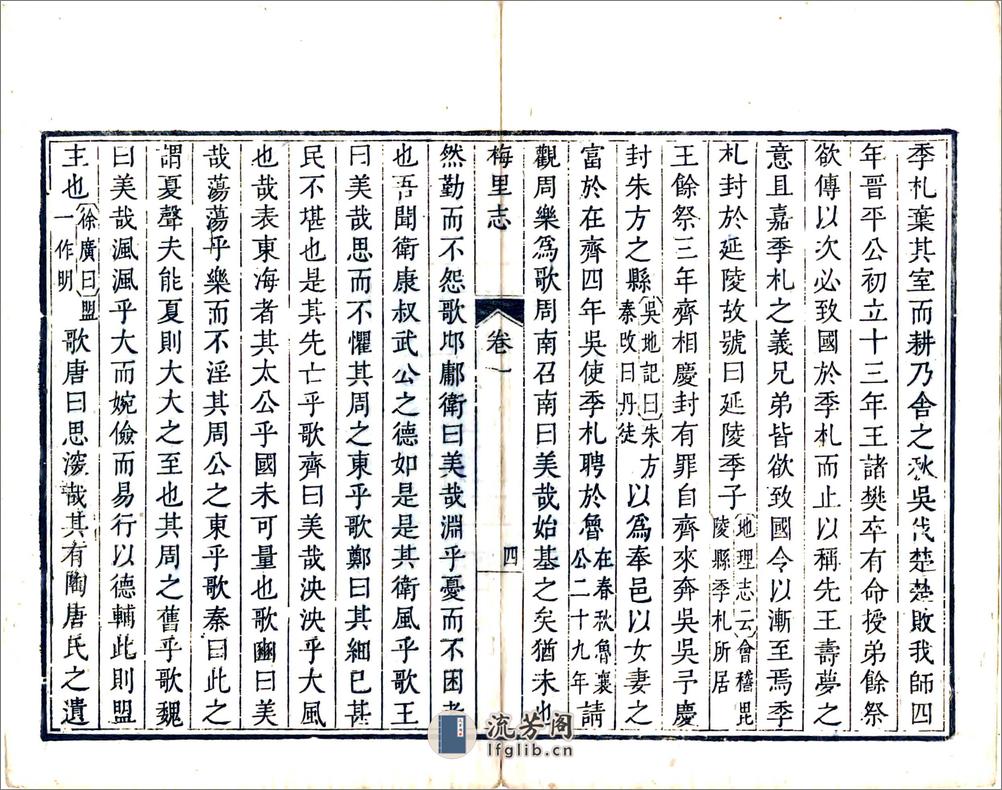 季札棄其室而耕乃舍之秋吳伐楚楚敗我師四
年晉平公初立十三年王諸樊卒有命授弟餘祭
欲傳以次必致國於季札而止以稱先王壽夢之
意且嘉季札之義兄弟皆欲致國令以漸至焉季
札封於延陵故號曰延陵季子地理志云會稽毘陵縣季札所居
王餘祭三年齊相慶封有罪自齊來奔吳吳予慶
封朱方之縣吳地記曰朱方秦改曰丹徒以爲奉邑以女妻之
富於在齊四年吳使季札聘於魯在春秋魯襄公二十九年請
觀周樂爲歌周南召南曰美哉始基之矣猶未也
梅里志 卷一 四
然勤而不怨歌邶鄘衛曰美哉淵乎憂而不困者
也吾聞衛康叔武公之德如是是其衛風乎歌王
曰美哉思而不懼其周之東乎歌鄭曰其細已甚
民不堪也是其先亡乎歌齊曰美哉泱泱乎大風
也哉表東海者其太公乎國未可量也歌豳曰美
哉蕩蕩乎樂而不淫其周公之東乎歌秦曰此之
謂夏聲夫能夏則大大之至也其周之舊乎歌魏
曰美哉渢渢乎大而婉儉而易行以德輔此則盟
主也徐廣曰盟一作明歌唐曰思深哉其有陶唐氏之遺
流芳阁
lfglib.cn